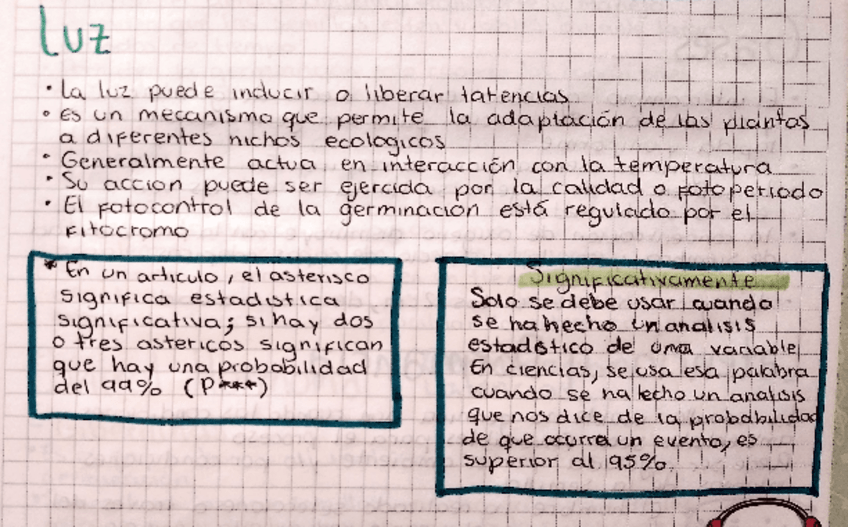 Luz
• La luz puede inducir o liberar latencias
• es un mecanismo que permite la adaptación de las plantas
a diferentes nichos ecologicos
• Generalmente actua en interacción con la temperatura
• Su accion puede ser ejercida por la calidad o fotoperiodo
• El fotocontrol de la germinación está regulado por el
fitocromo
* En un articulo, el asterisco
significa estadistica
significativa; si hay dos
o tres astericos significan
que hay una probabilidad
del 99% (P***)
Significativamente
Solo se debe usar cuando
se ha hecho un analisis
estadistico de una variable
En ciencias, se usa esa palabra
cuando se ha hecho un analisis
que nos dice de la probabilidad
de que ocurra un evento, es
superior al 95%.